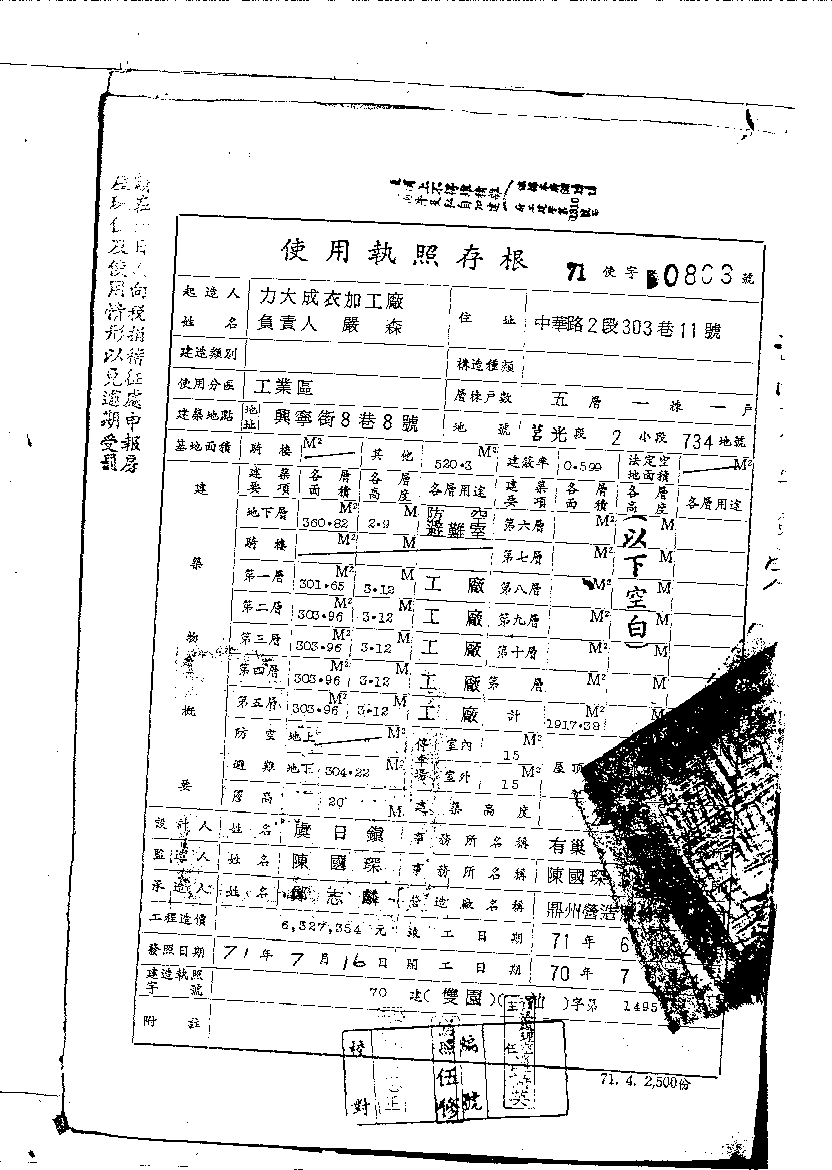 使用執照存根 71 使字 0803 號
起造人 姓名 力大成衣加工廠 負責人 嚴森 住址 中華路2段303巷11號
建造類別 構造種類
使用分區 工業區 層棟戶數 五層一棟一戶
建築地點 地址 興寧街8巷8號 地號 莒光段 2 小段 734地號
基地面積 騎樓 M² 其他 520.3 M² 建蔽率 0.599 法定空地面積 M²
建築物概要 建築要項 各層面積 各層高度 各層用途 建築要項 各層面積 各層高度 各層用途
地下層 360.82 M² 2.9 M 防空避難室 第六層 M² M (以下空白)
騎樓 M² M 第七層 M
第一層 301.65 M² 3.12 M 工廠 第八層 M² M
第二層 303.96 M² 3.12 工廠 第九層 M² M
第三層 303.96 M² 3.12 M 工廠 第十層 M² M
第四層 303.96 M² 3.12 M 工廠 第 層 M² M
第五層 303.96 M² 3.12 M 工廠 計 1917.38 M² M
防空 地上 M² 停車場 室內 15 M² 屋頂
避難 地下 304.22 M² 室外 15 M²
簷高 20 M 建築高度
設計人 姓名 虞日鎮 事務所名稱 有巢
監造人 姓名 陳國琛 事務所名稱 陳國琛
承造人 姓名 鄭志麟 營造廠名稱 鼎州營造
工程造價 6,327,354元 竣工日期 71年6
發照日期 71年7月16日 開工日期 70年7
建造執照字號 70 建(雙園)( )字第 1495
附註
校對 正
編號
71. 4. 2,500份